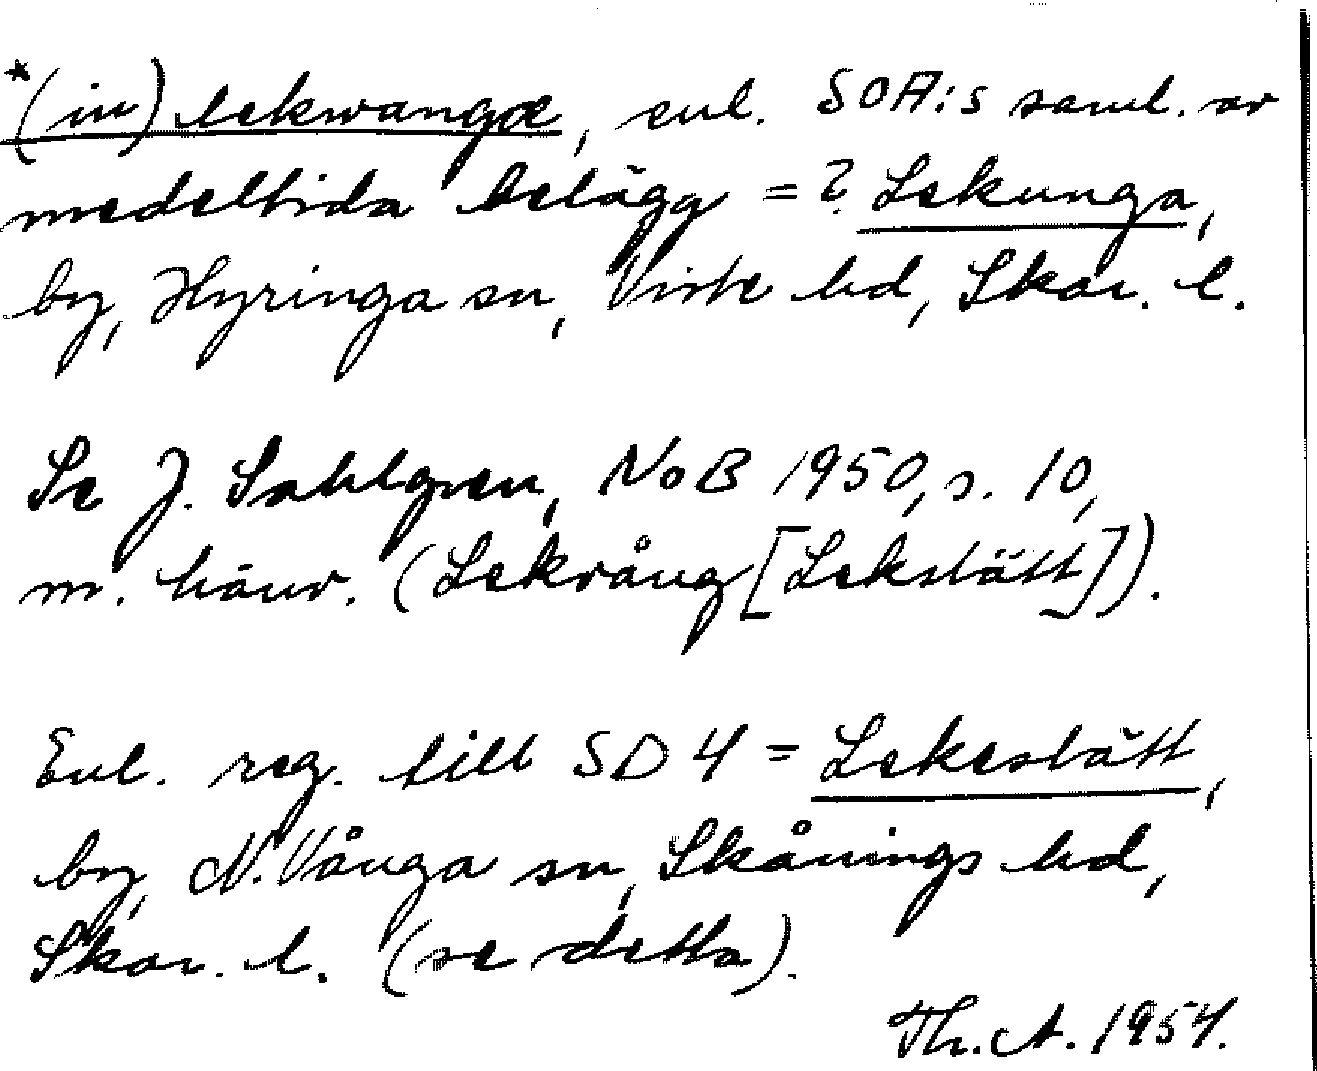 *(in) lekwangæ, enl. SOA:s saml. av
medeltida belägg = ? Lekunga,
by, Hyringa sn, Viste hd, Skar. l.
Se J. Sahlgren, NoB 1950, s. 10,
m. hänv. (Lekvång [Lekslätt]).
Enl. reg. till SD 4 = Lekeslätt,
by, N. Vånga sn, Skånings hd,
Skar. l. (se detta).
Th. A. 1954.